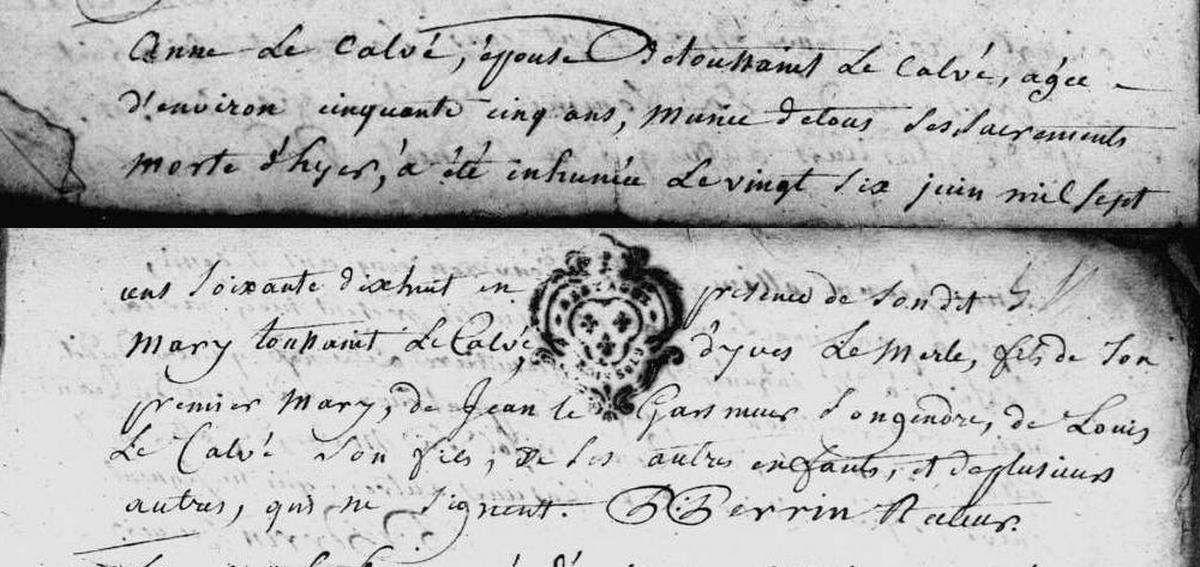 Anne Le Calvé, épouse de toussaint Le Calvé, agée
d'environ cinquante cinq ans, munie de tous ses sacrements
morte d'hyer, a été inhumée Le vingt six juin mil sept
cens soixante dixhuit en présence de son dit
Mary toussaint Le Calvé, d'yves Le Merle, fils de son
premier Mary, de Jean le son gendre, de Louis
Le Calvé son fils, de ses autres enfants, et de plusieurs
autres, qui ne signent. Perrin Recteur.